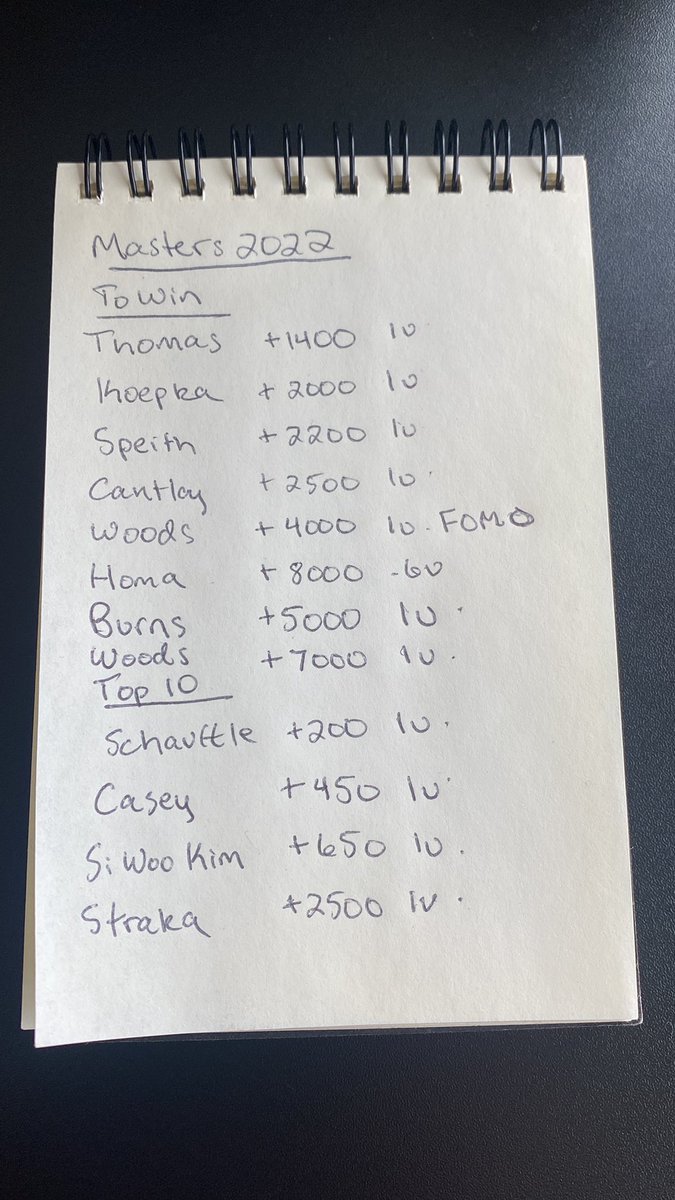 Masters 2022
To Win
Thomas +1400 1u
Koepka +2000 1u
Speith +2200 1u
Cantlay +2500 1u
Woods +4000 1u. FOMO
Homa +8000 .6u
Burns +5000 1u
Woods +7000 1u.
Top 10
Schauffle +200 1u.
Casey +450 1u
Si Woo Kim +650 1u.
Straka +2500 1u.